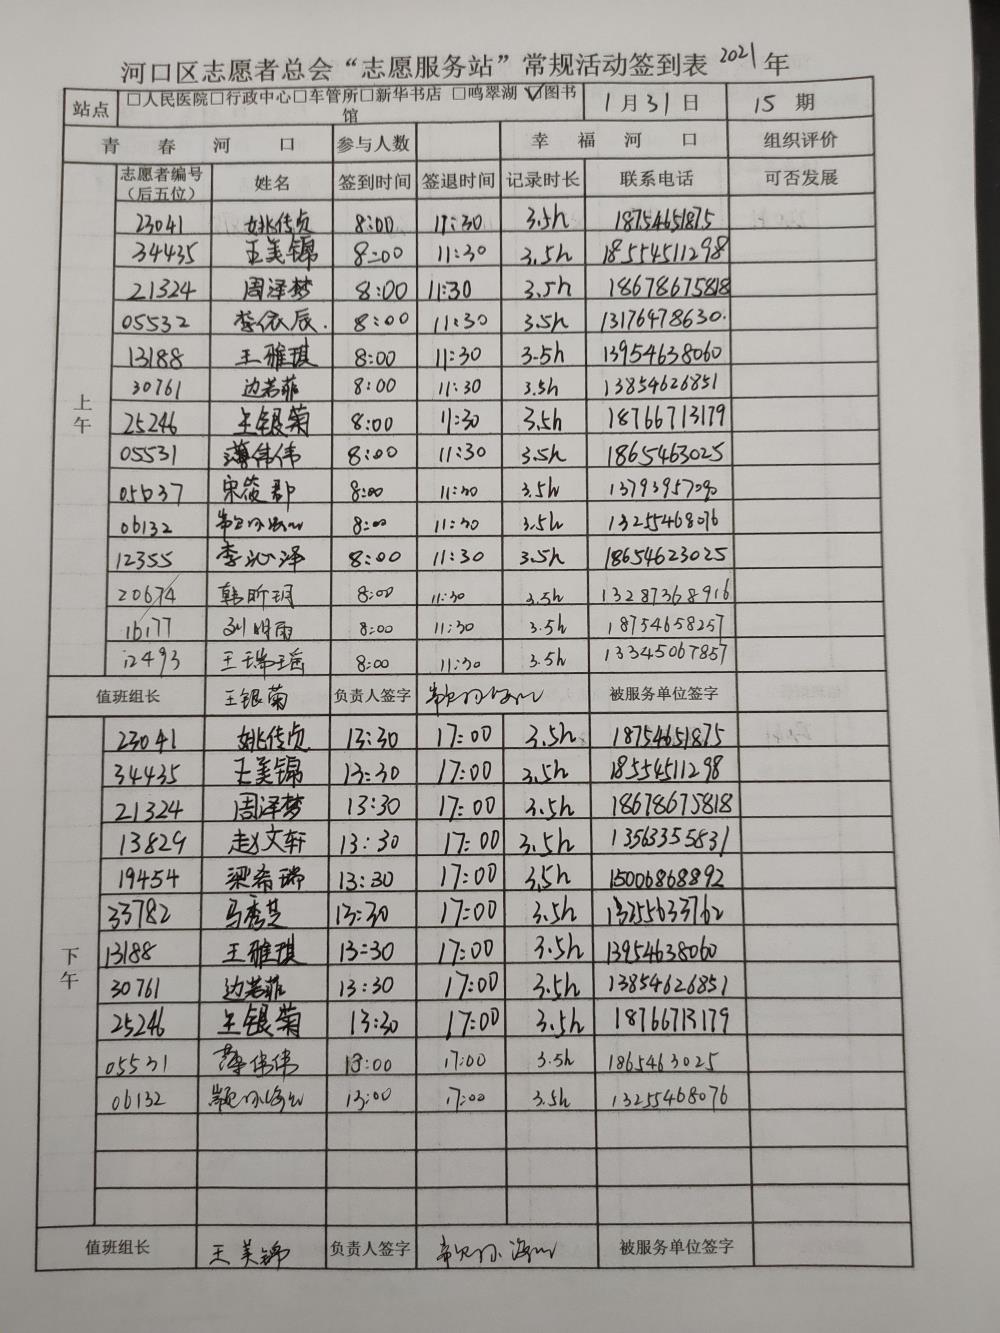 河口区志愿者总会“志愿服务站”常规活动签到表 2021年
站点 □人民医院□行政中心□车管所□新华书店 □鸣翠湖 ☑图书馆 1月31日 15期
青春河口 参与人数 幸福河口 组织评价
志愿者编号（后五位） 姓名 签到时间 签退时间 记录时长 联系电话 可否发展
上午
23041 姚传贞 8:00 11:30 3.5h 18754651875
34435 王美锦 8:00 11:30 3.5h 18554511298
21324 周泽梦 8:00 11:30 3.5h 18678675818
05532 李依辰 8:00 11:30 3.5h 13176478630
13188 王雅琪 8:00 11:30 3.5h 13954638060
30761 边若菲 8:00 11:30 3.5h 13854626851
25246 王银菊 8:00 11:30 3.5h 18766713179
05531 薄伟伟 8:00 11:30 3.5h 1865463025
宋筱郡 8:00 11:30 3.5h
06132 8:00 11:30 3.5h 13255468076
12355 李沁泽 8:00 11:30 3.5h 18654623025
20674 韩昕玥 8:00 11:30 3.5h 13287368916
16177 刘明雨 8:00 11:30 3.5h 18754658257
12493 王瑞瑶 8:00 11:30 3.5h 13345067857
值班组长 王银菊 负责人签字 被服务单位签字
下午
23041 姚传贞 13:30 17:00 3.5h 18754651875
34435 王美锦 13:30 17:00 3.5h 18554511298
21324 周泽梦 13:30 17:00 3.5h 18678675818
13829 赵文轩 13:30 17:00 3.5h 13563355831
19454 梁希瑞 13:30 17:00 3.5h 15006868892
33782 马秀芝 13:30 17:00 3.5h 13255633762
13188 王雅琪 13:30 17:00 3.5h 13954638060
30761 边若菲 13:30 17:00 3.5h 13854626851
25246 王银菊 13:30 17:00 3.5h 18766713179
05531 薄伟伟 13:00 17:00 3.5h 1865463025
06132 13:00 17:00 3.5h 13255468076
值班组长 王美锦 负责人签字 被服务单位签字